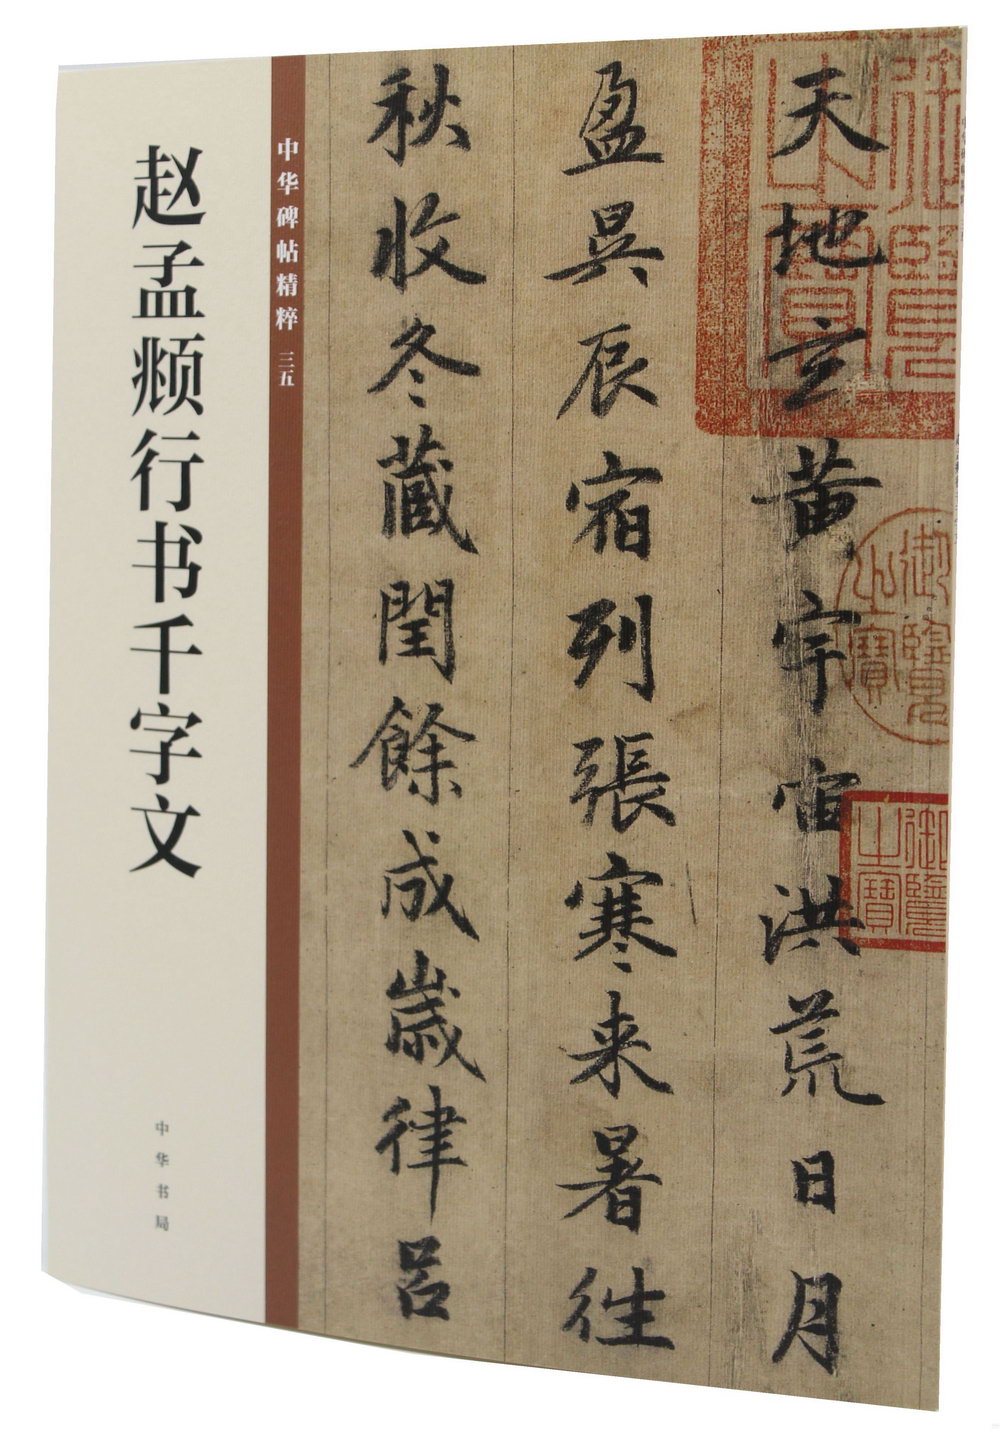 赵孟𫖯行书千字文
中华书局
中华碑帖精粹 三五
天地玄黄宇宙洪荒日月
盈昃辰宿列張寒来暑往
秋收冬藏閏餘成歲律吕
御覽之寶